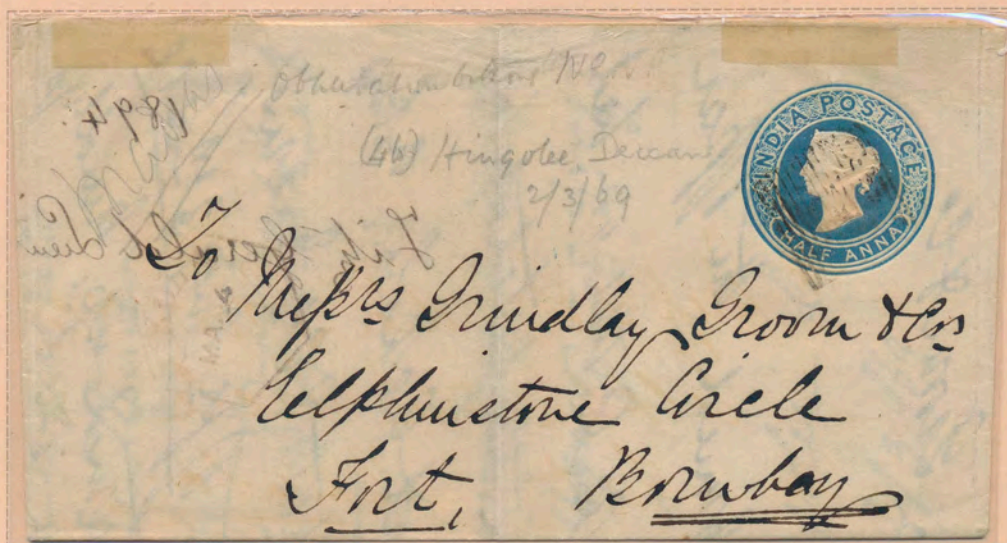 1894
(46) Hingolee, Deccan
2/3/69
INDIA POSTAGE
HALF ANNA
To
Messrs Grindlay Groom & Co
Elphinstone Circle
Fort, Bombay